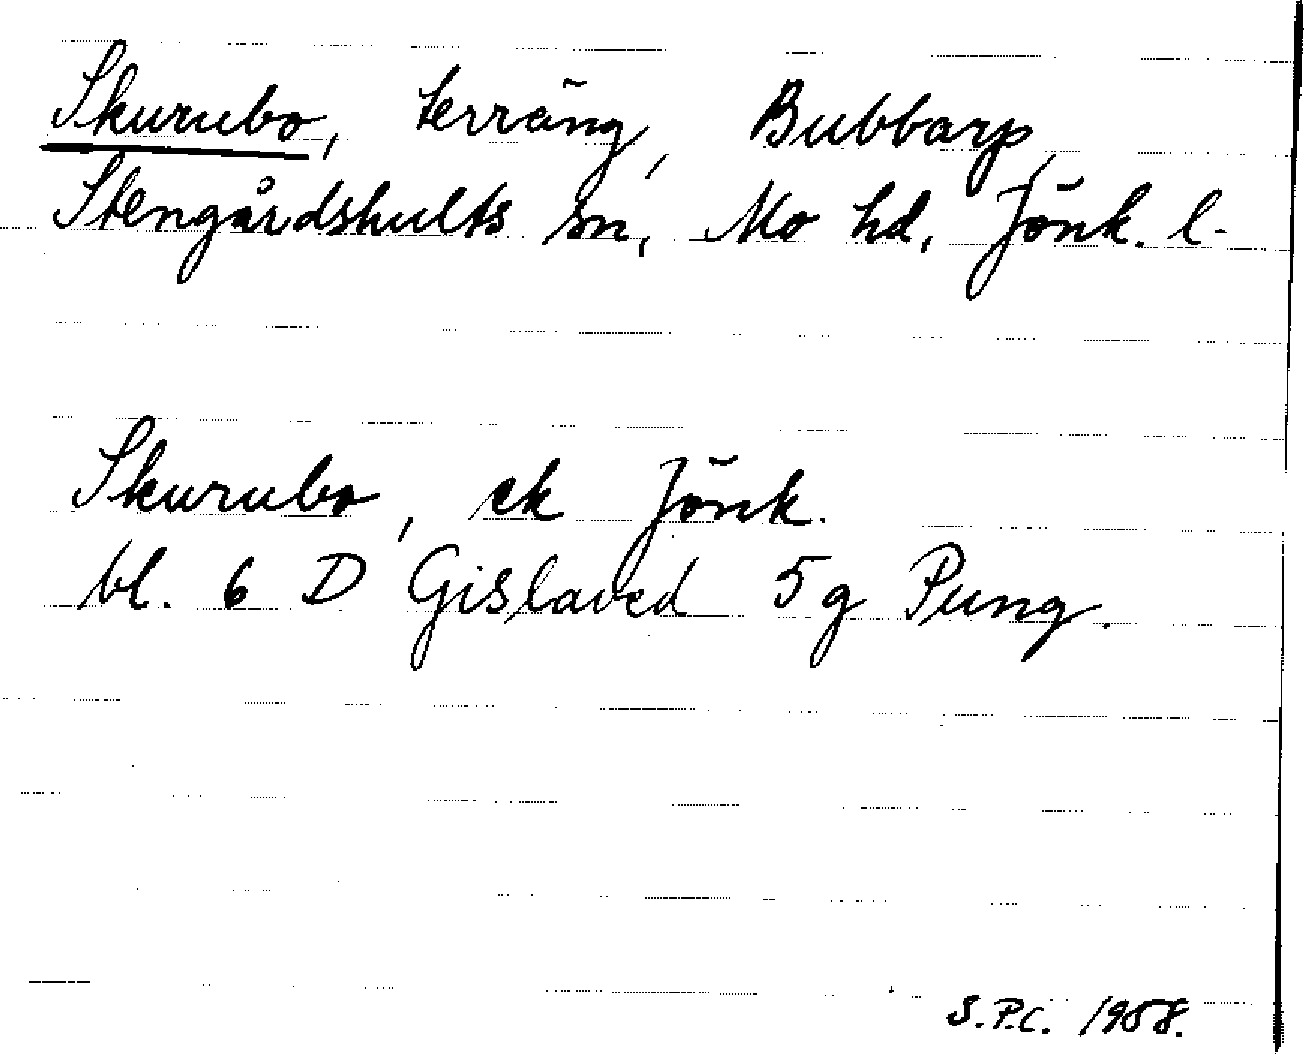 Skurubo, terräng, Bubbarp,
Stengårdshults sn, Mo hd, Jönk. l.
Skurubo, ek Jönk.
bl. 6 D Gislaved 5 g Pung.
S.P.C. 1958.